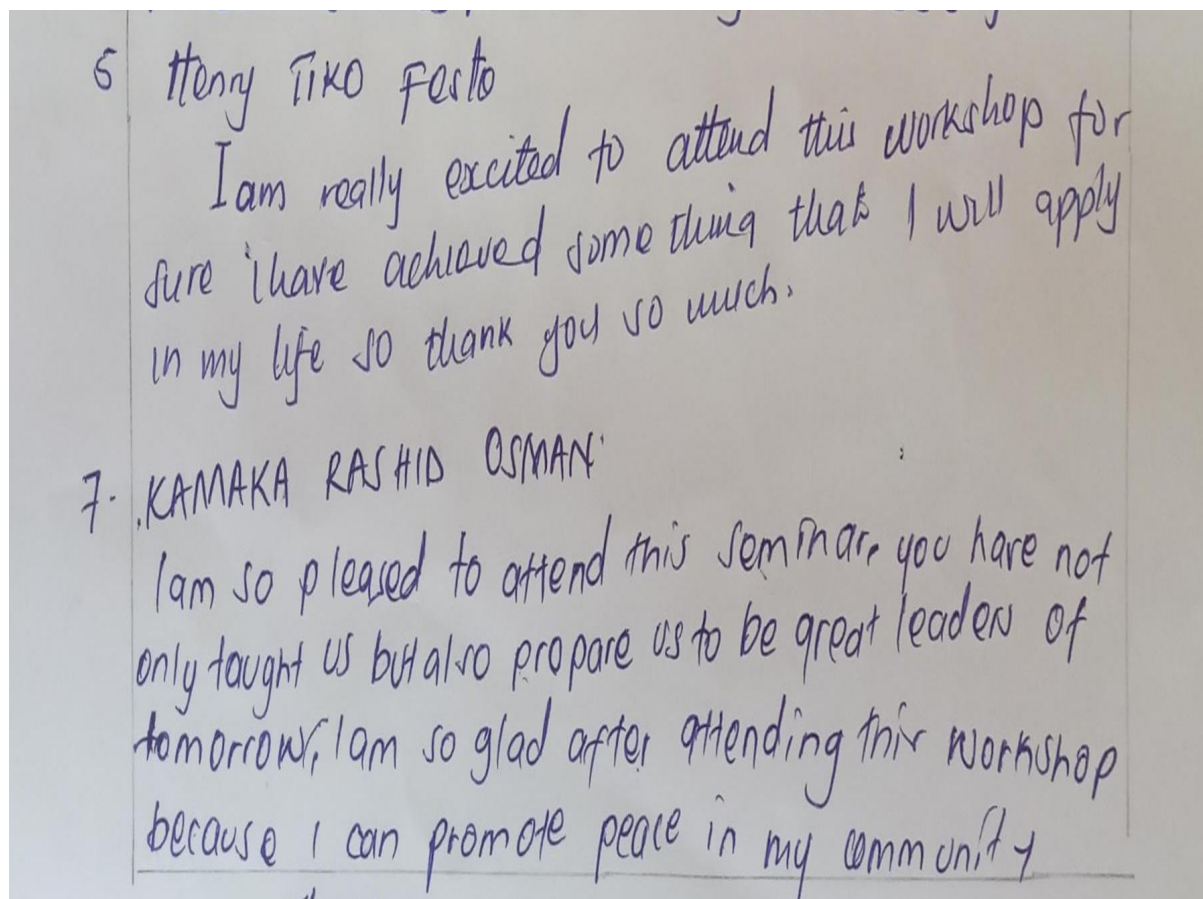 6 Henry TIKO Festo
I am really excited to attend this workshop for
sure i have achieved some thing that I will apply
in my life so thank you so much.
7. KAMAKA RASHID OSMAN
I am so pleased to attend this seminar, you have not
only taught us but also prepare us to be great leaders of
tomorrow, I am so glad after attending this workshop
because I can promote peace in my community